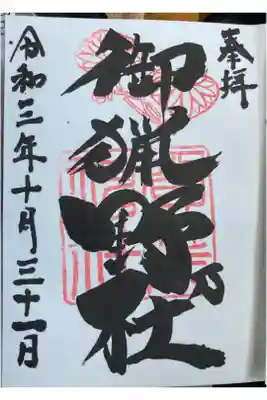 奉拝
御猟野乃杜
令和三年十月三十一日